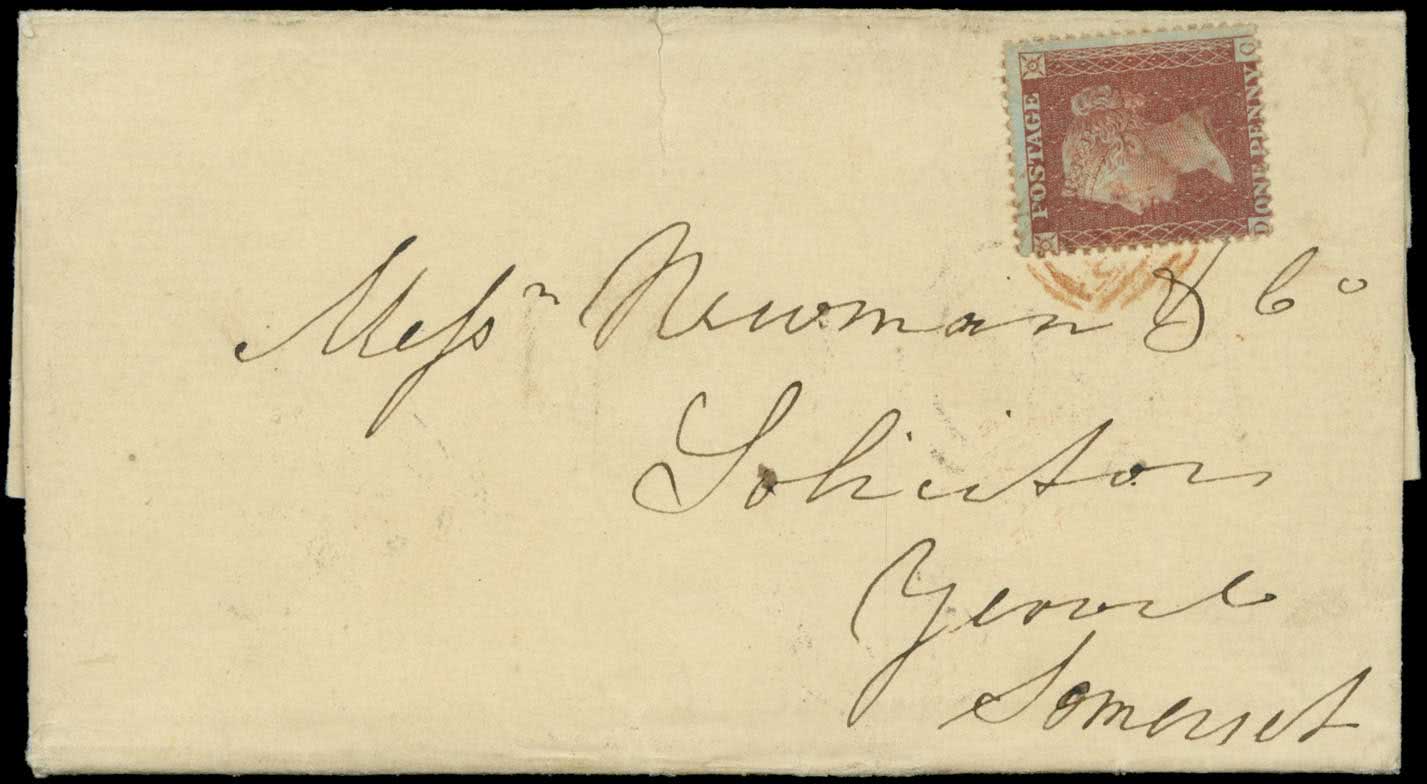 POSTAGE
ONE PENNY
D C
Messrs Newman & Co
Solicitors
Yeovil
Somerset